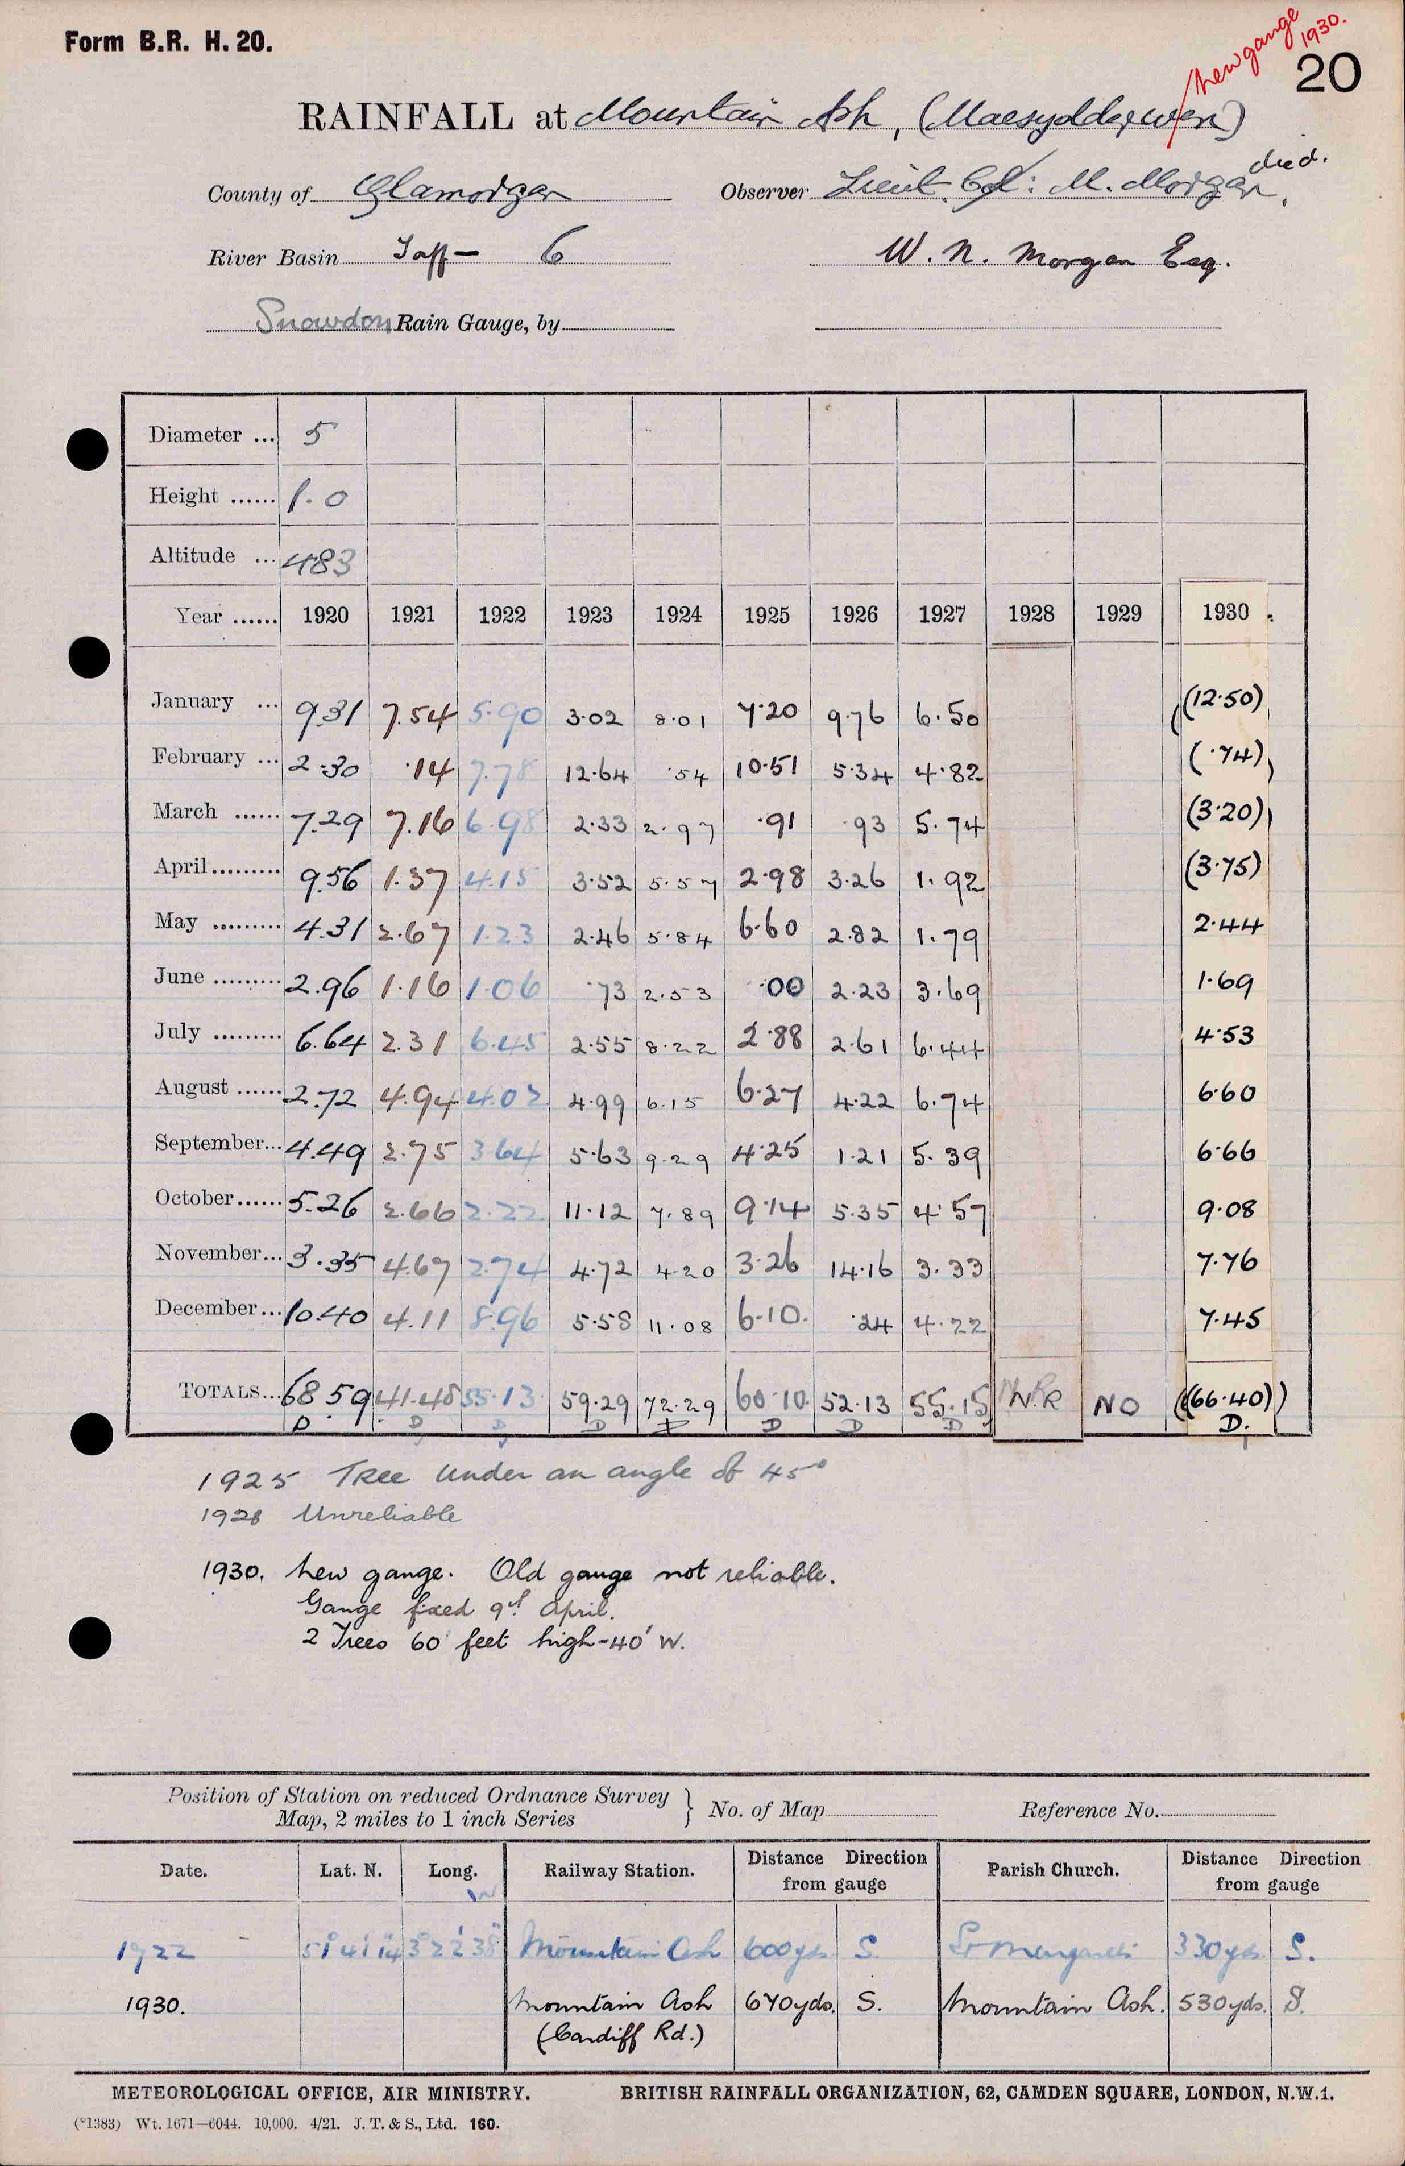 Form B.R. H. 20.
New gauge 1930.
20
RAINFALL at Mountain Ash, (Maesydderwen)
County of Glamorgan Observer Lieut. Col: M. Morgan, died.
River Basin Taff — 6 W. N. Morgan Esq.
Snowdon Rain Gauge, by
Diameter ... 5
Height ...... 1.0
Altitude ... 483
Year ...... 1920 1921 1922 1923 1924 1925 1926 1927 1928 1929 1930.
January ... 9.31 7.54 5.90 3.02 8.01 7.20 9.76 6.50 (12.50)
February ... 2.30 .14 7.78 12.64 .54 10.51 5.34 4.82 (.74)
March ...... 7.29 7.16 6.98 2.33 2.97 .91 .93 5.74 (3.20)
April ......... 9.56 1.37 4.15 3.52 5.57 2.98 3.26 1.92 (3.75)
May ......... 4.31 2.67 1.23 2.46 5.84 6.60 2.82 1.79 2.44
June ......... 2.96 1.16 1.06 .73 2.53 .00 2.23 3.69 1.69
July ......... 6.64 2.31 6.45 2.55 8.22 2.88 2.61 6.44 4.53
August ...... 2.72 4.94 4.02 4.99 6.15 6.27 4.22 6.74 6.60
September... 4.49 2.75 3.64 5.63 9.29 4.25 1.21 5.39 6.66
October...... 5.26 2.66 2.22 11.12 7.89 9.14 5.35 4.57 9.08
November... 3.35 4.67 2.74 4.72 4.20 3.26 14.16 3.33 7.76
December... 10.40 4.11 8.96 5.58 11.08 6.10. .24 4.22 7.45
TOTALS... 68.59 41.48 55.13 59.29 72.29 60.10 52.13 55.15 N.R NO (66.40)
D D D D D D D D D.
1925 Tree under an angle of 45°
1928 Unreliable
1930. New gauge. Old gauge not reliable.
Gauge fixed 9th April.
2 Trees 60 feet high-40' W.
Position of Station on reduced Ordnance Survey Map, 2 miles to 1 inch Series } No. of Map Reference No.
Date. Lat. N. Long. W Railway Station. Distance Direction from gauge Parish Church. Distance Direction from gauge
1922 51° 41' 14" 3° 22' 38" Mountain Ash 600yds. S. St Margarets 330yds. S.
1930. Mountain Ash 670yds. S. Mountain Ash. 530yds. S.
(Cardiff Rd.)
METEOROLOGICAL OFFICE, AIR MINISTRY. BRITISH RAINFALL ORGANIZATION, 62, CAMDEN SQUARE, LONDON, N.W.1.
(*1383) Wt. 1671—6044. 10,000. 4/21. J. T. & S., Ltd. 160.